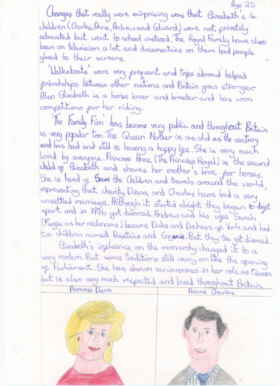 Page 20
Changes that really were surprising were that Elizabeth's
children (Charles, Anne, Andrew and Edward) were not privately
educated but went to school instead. The Royal Family have also
been on television a lot and documentaries on them had people
glued to their screens.
'Walkabouts' were very frequent and trips abroad helped
friendships between other nations and Britain grow stronger.
Also Elizabeth is a horse lover and breeder and has won
competitions for her riding.
The Family Firm has become very public and throughout Britain
is very popular too. The Queen Mother is as old as the century
and has had and still is having a happy life. She is very much
loved by everyone. Princess Anne (The Princess Royal) is the second
child of Elizabeth and shares her mother's love for horses.
She is head of Save the Children and travels around the world,
representing that charity. Diana and Charles have had a very
unsettled marriage. Although it started alright they
apart and in 1996 got divorced. Andrew and his wife Sarah
(Fergie as her nickname) became Duke and Duchess of York and had
two children named Beatrice and Eugenie. But they too got divorced.
Elizabeth's on the monarchy changed it to a
very modern. But some traditions still carry on like the opening
of Parliament. She has shown in her role as Queen
but is also very much respected and loved throughout Britain.
Princess Diana
Prince Charles